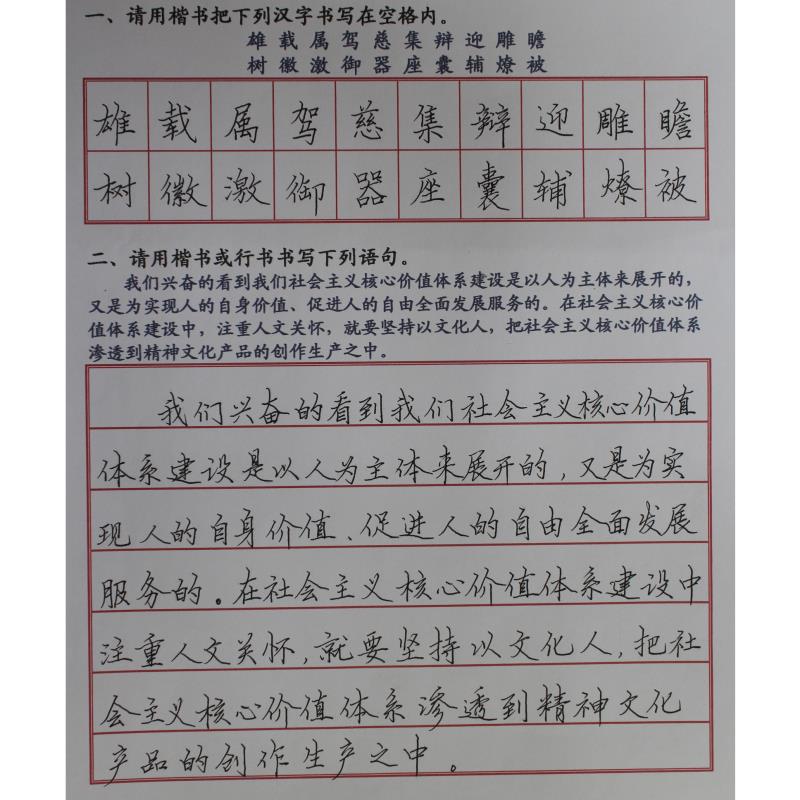 一、请用楷书把下列汉字书写在空格内。
雄 载 属 驾 慈 集 辩 迎 雕 瞻
树 徽 激 御 器 座 囊 辅 燎 被
雄 载 属 驾 慈 集 辩 迎 雕 瞻
树 徽 激 御 器 座 囊 辅 燎 被
二、请用楷书或行书书写下列语句。
我们兴奋的看到我们社会主义核心价值体系建设是以人为主体来展开的,
又是为实现人的自身价值、促进人的自由全面发展服务的。在社会主义核心价
值体系建设中,注重人文关怀,就要坚持以文化人,把社会主义核心价值体系
渗透到精神文化产品的创作生产之中。
我们兴奋的看到我们社会主义核心价值
体系建设是以人为主体来展开的,又是为实
现人的自身价值、促进人的自由全面发展
服务的。在社会主义核心价值体系建设中
注重人文关怀,就要坚持以文化人,把社
会主义核心价值体系渗透到精神文化
产品的创作生产之中。